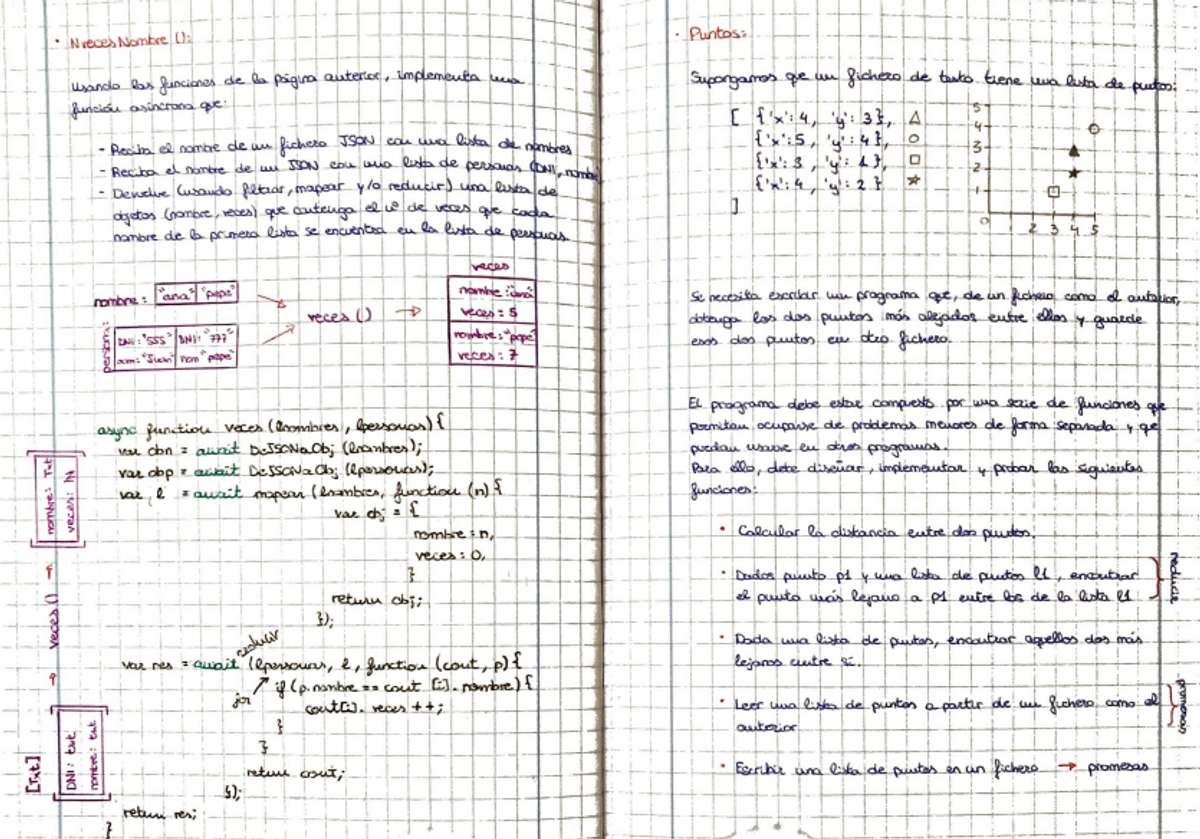 • NvecesNombre ():
Usando las funciones de la página anterior, implementa una
función asíncrona que:
- Reciba el nombre de un fichero JSON con una lista de nombres
- Reciba el nombre de un JSON con una lista de personas (DNI, nombre
- Devuelve (usando filtrar, mapear y/o reducir) una lista de
objetos (nombre, veces) que contenga el nº de veces que cada
nombre de la primera lista se encuentra en la lista de personas
nombre: "ana" "pepe"
persona:
DNI: "555" DNI: "777"
nom: "Juan" nom "pepe"
veces ()
veces
nombre: "ana"
veces: 5
nombre: "pepe"
veces: 7
async function veces (lnombres, lpersonas) {
var obn = await DeJSONaObj (lnombres);
var obp = await DeJSONaObj (lpersonas);
var l = await mapear (lnombres, function (n) {
var obj = {
nombre: n,
veces: 0,
}
return obj;
});
reducir
var res = await (lpersonas, l, function (cont, p) {
for
if (p.nombre == cont [i].nombre) {
cont[i].veces ++;
}
}
return cont;
});
return res;
}
nombre: Txt
veces: N
veces ()
[Txt]
DNI: txt
nombre: txt
• Puntos:
Supongamos que un fichero de texto tiene una lista de puntos:
[ {'x': 4, 'y': 3},
{'x': 5, 'y': 4},
{'x': 3, 'y': 1},
{'x': 4, 'y': 2}
]
5
4
3
2
1
0
2 3 4 5
Se necesita escribir un programa que, de un fichero como el anterior,
obtenga los dos puntos más alejados entre ellos y guarde
esos dos puntos en otro fichero.
El programa debe estar compuesto por una serie de funciones que
permitan ocuparse de problemas menores de forma separada y que
puedan usarse en otros programas.
Para ello, debe diseñar, implementar y probar las siguientes
funciones:
• Calcular la distancia entre dos puntos.
• Dados punto p1 y una lista de puntos l1, encontrar
el punto más lejano a p1 entre los de la lista l1
reducir
• Dada una lista de puntos, encontrar aquellos dos más
lejanos entre sí.
• Leer una lista de puntos a partir de un fichero como el
anterior
promesas
• Escribir una lista de puntos en un fichero → promesas